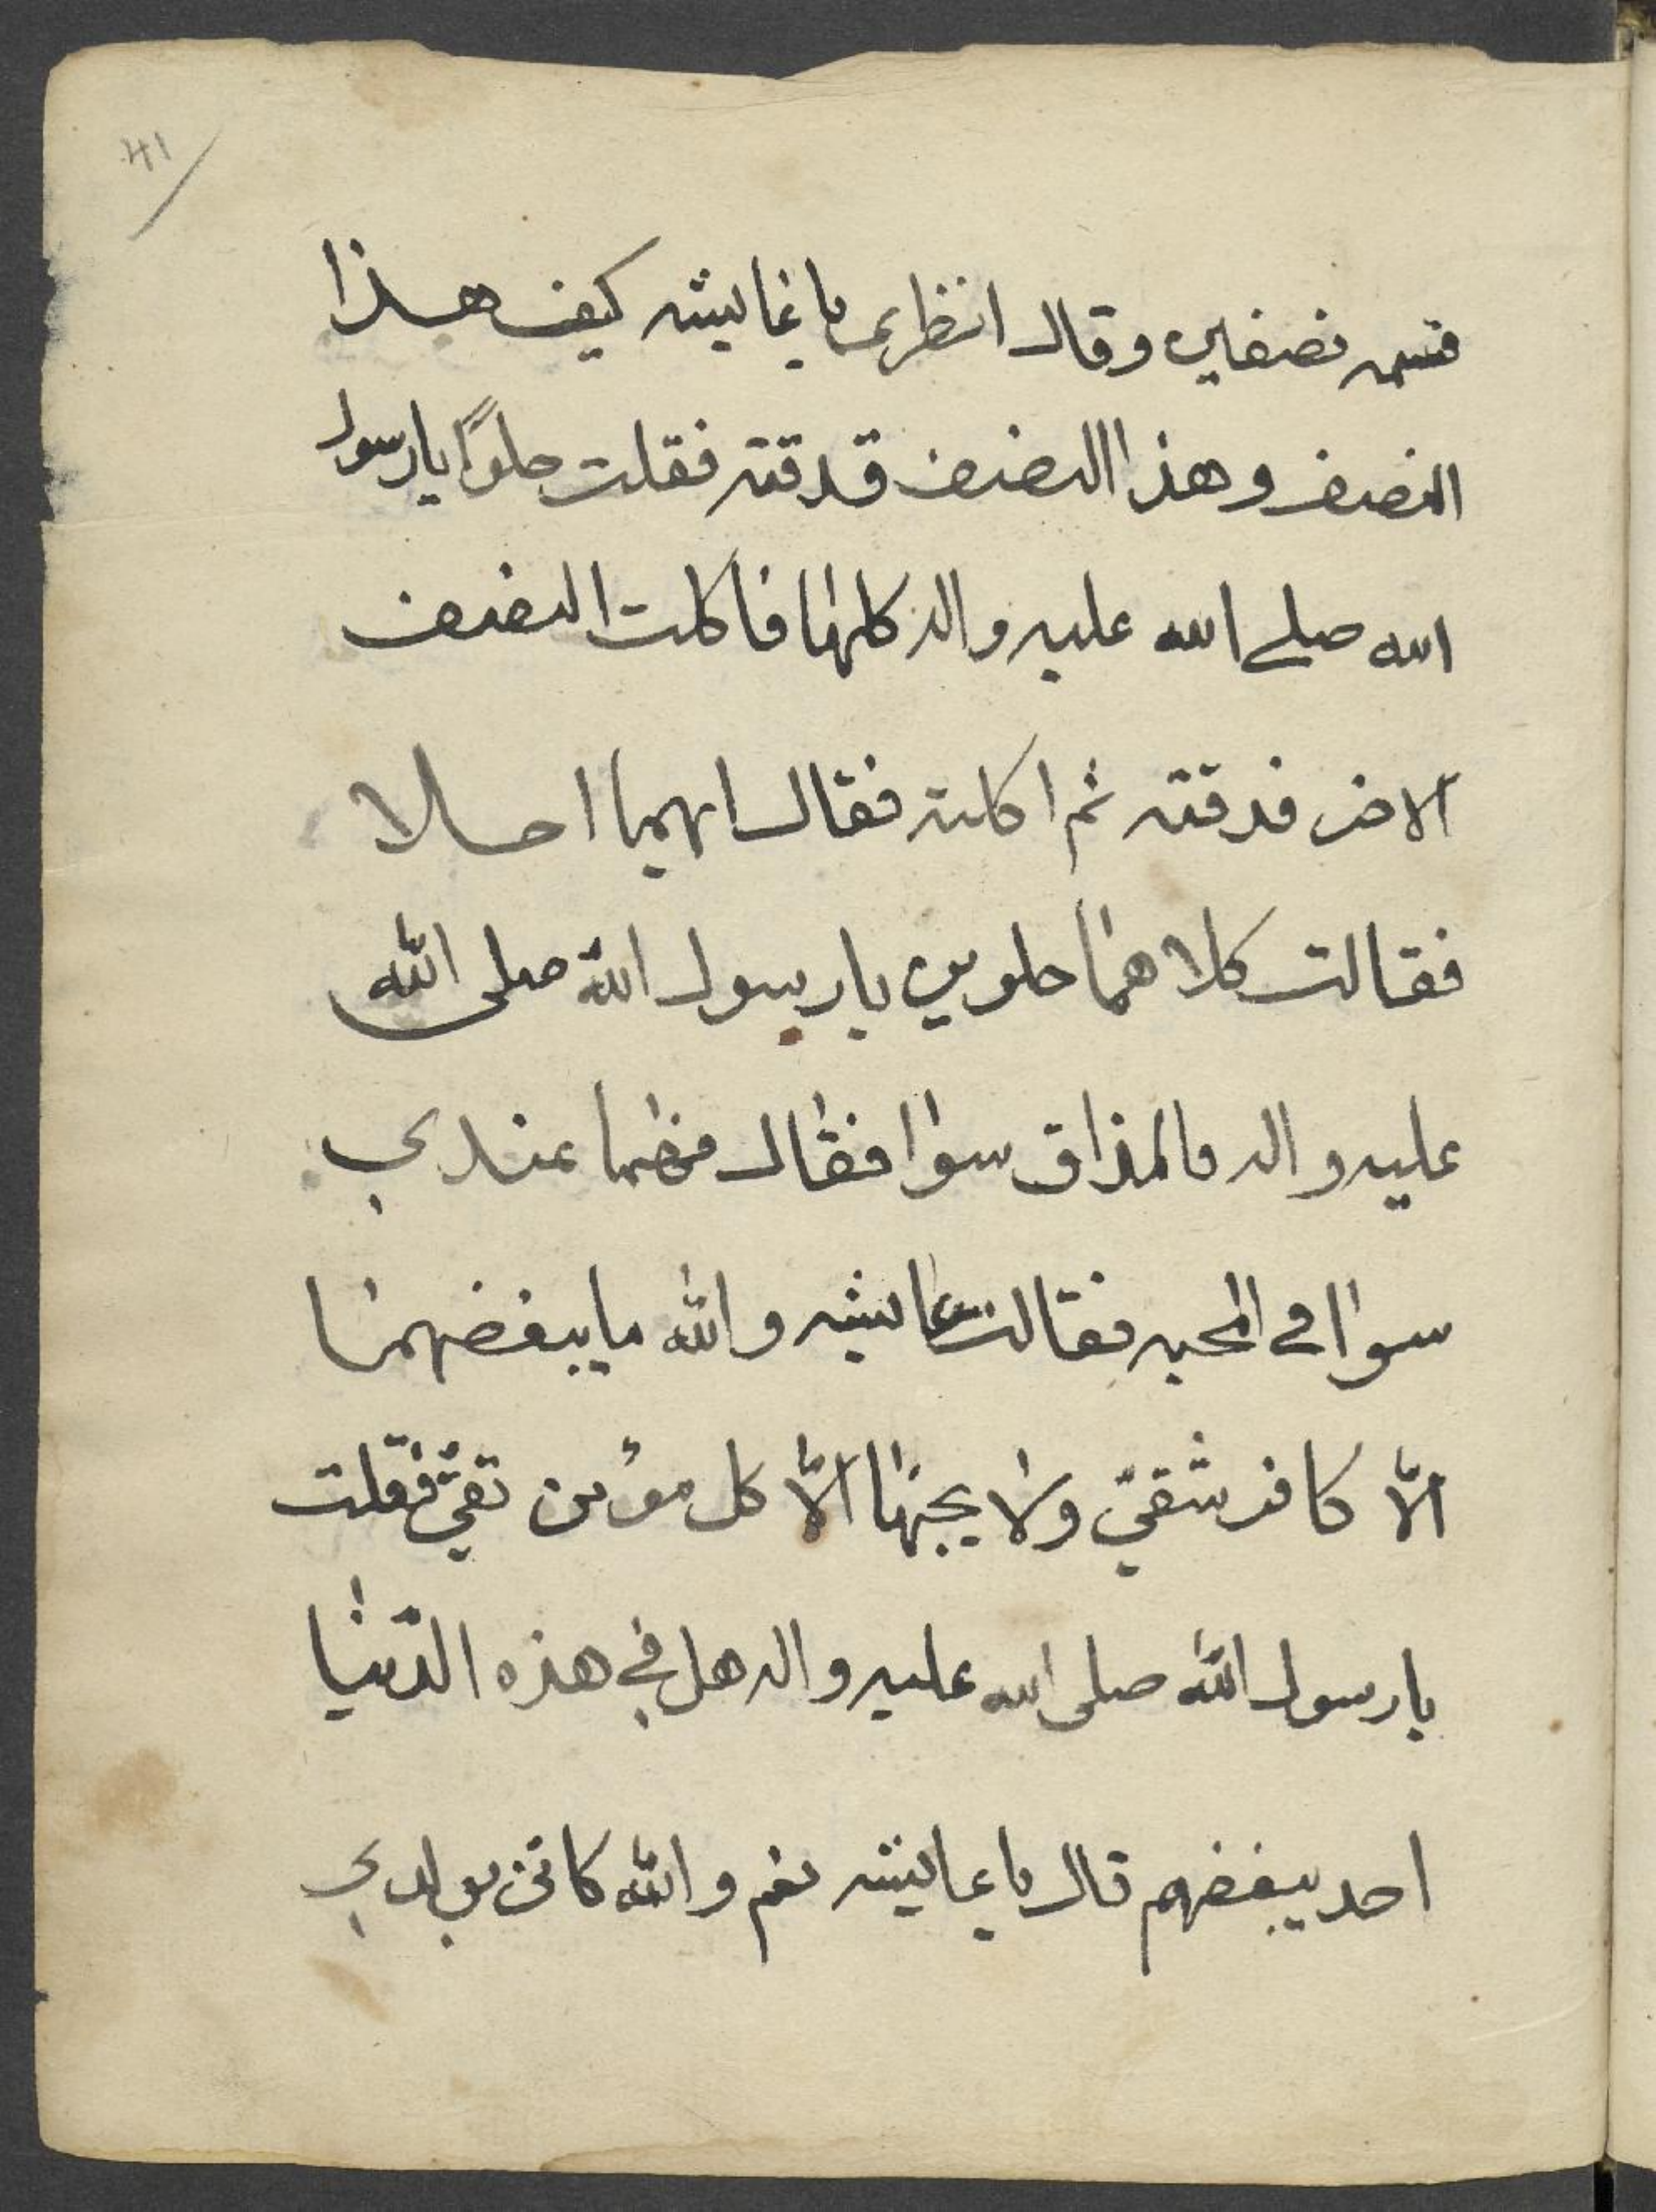 41
قسمه نصفين وقال انظري يا عايشه كيف هذا
النصف وهذا النصف قدقته فقلت حلوًا يا رسول
الله صلے الله عليه واله كلهما فاكلت النصف
الاخر فدقته ثم اكلته فقال ايهما احلا
فقالت كلاهما حلوين يا رسول الله صلى الله
عليه واله فالمذاق سوا فقال فهما عندي
سوا في المحبه فقالت عايشه والله ما يبغضهما
الّا كافر شقيّ ولا يحبهما الّا كل مؤمن تقيّ فقلت
يا رسول الله صلى الله عليه واله هل في هذه الدّنيا
احد يبغضهم قال يا عايشه نعم والله كاني بولدي